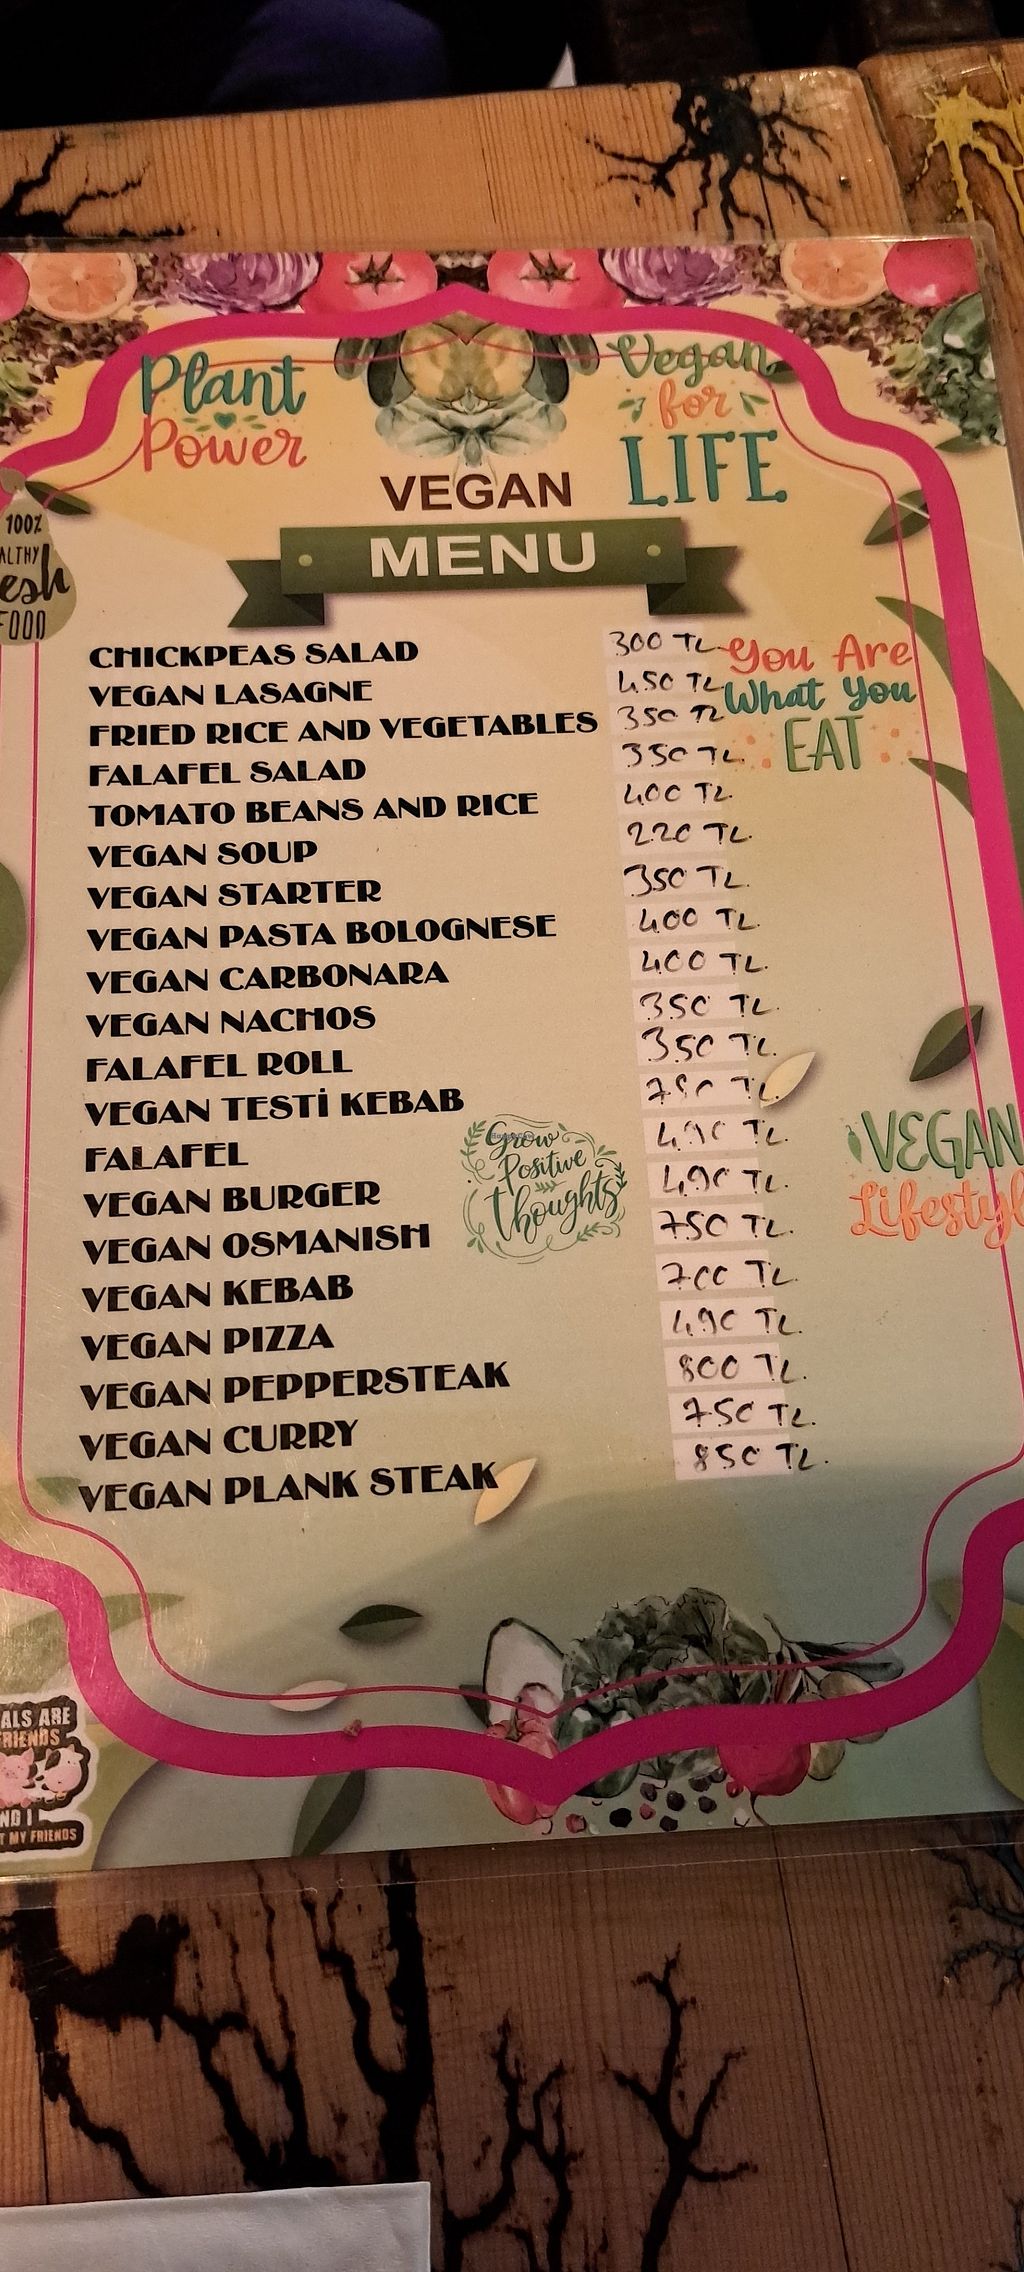 Plant
Power
Vegan
for
LIFE
VEGAN
MENU
100%
ALTHY
esh
FOOD
CHICKPEAS SALAD 300 TL
VEGAN LASAGNE 450 TL
FRIED RICE AND VEGETABLES 350 TL
FALAFEL SALAD 350 TL.
TOMATO BEANS AND RICE 400 TL
VEGAN SOUP 220 TL.
VEGAN STARTER 350 TL.
VEGAN PASTA BOLOGNESE 400 TL
VEGAN CARBONARA 400 TL.
VEGAN NACHOS 350 TL.
FALAFEL ROLL 350 TL.
VEGAN TESTİ KEBAB 750 TL
FALAFEL 490 TL.
VEGAN BURGER 490 TL.
VEGAN OSMANISH 750 TL.
VEGAN KEBAB 700 TL.
VEGAN PIZZA 490 TL.
VEGAN PEPPERSTEAK 800 TL.
VEGAN CURRY 750 TL.
VEGAN PLANK STEAK 850 TL.
You Are
What You
EAT
Grow
Positive
Thoughts
VEGAN
Lifestyl
ALS ARE
RIENDS
ND I
T MY FRIENDS